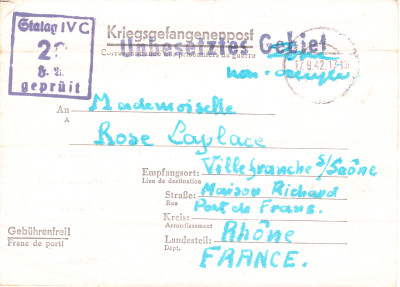 Stalag IV C
geprüft
Kriegsgefangenenpost
Correspondance des prisonniers de guerre
Unbesetztes Gebiet
17.8.42.17-18
An
A
Mademoiselle
Rose Laplace
Empfangsort: Villefranche s/Saône
Lieu de destination
Straße: Maison Richard
Rue
Port de Frans.
Kreis:
Arrondissement
Landesteil: Rhône
Dépt.
FRANCE.
Gebührenfrei!
Franc de port!